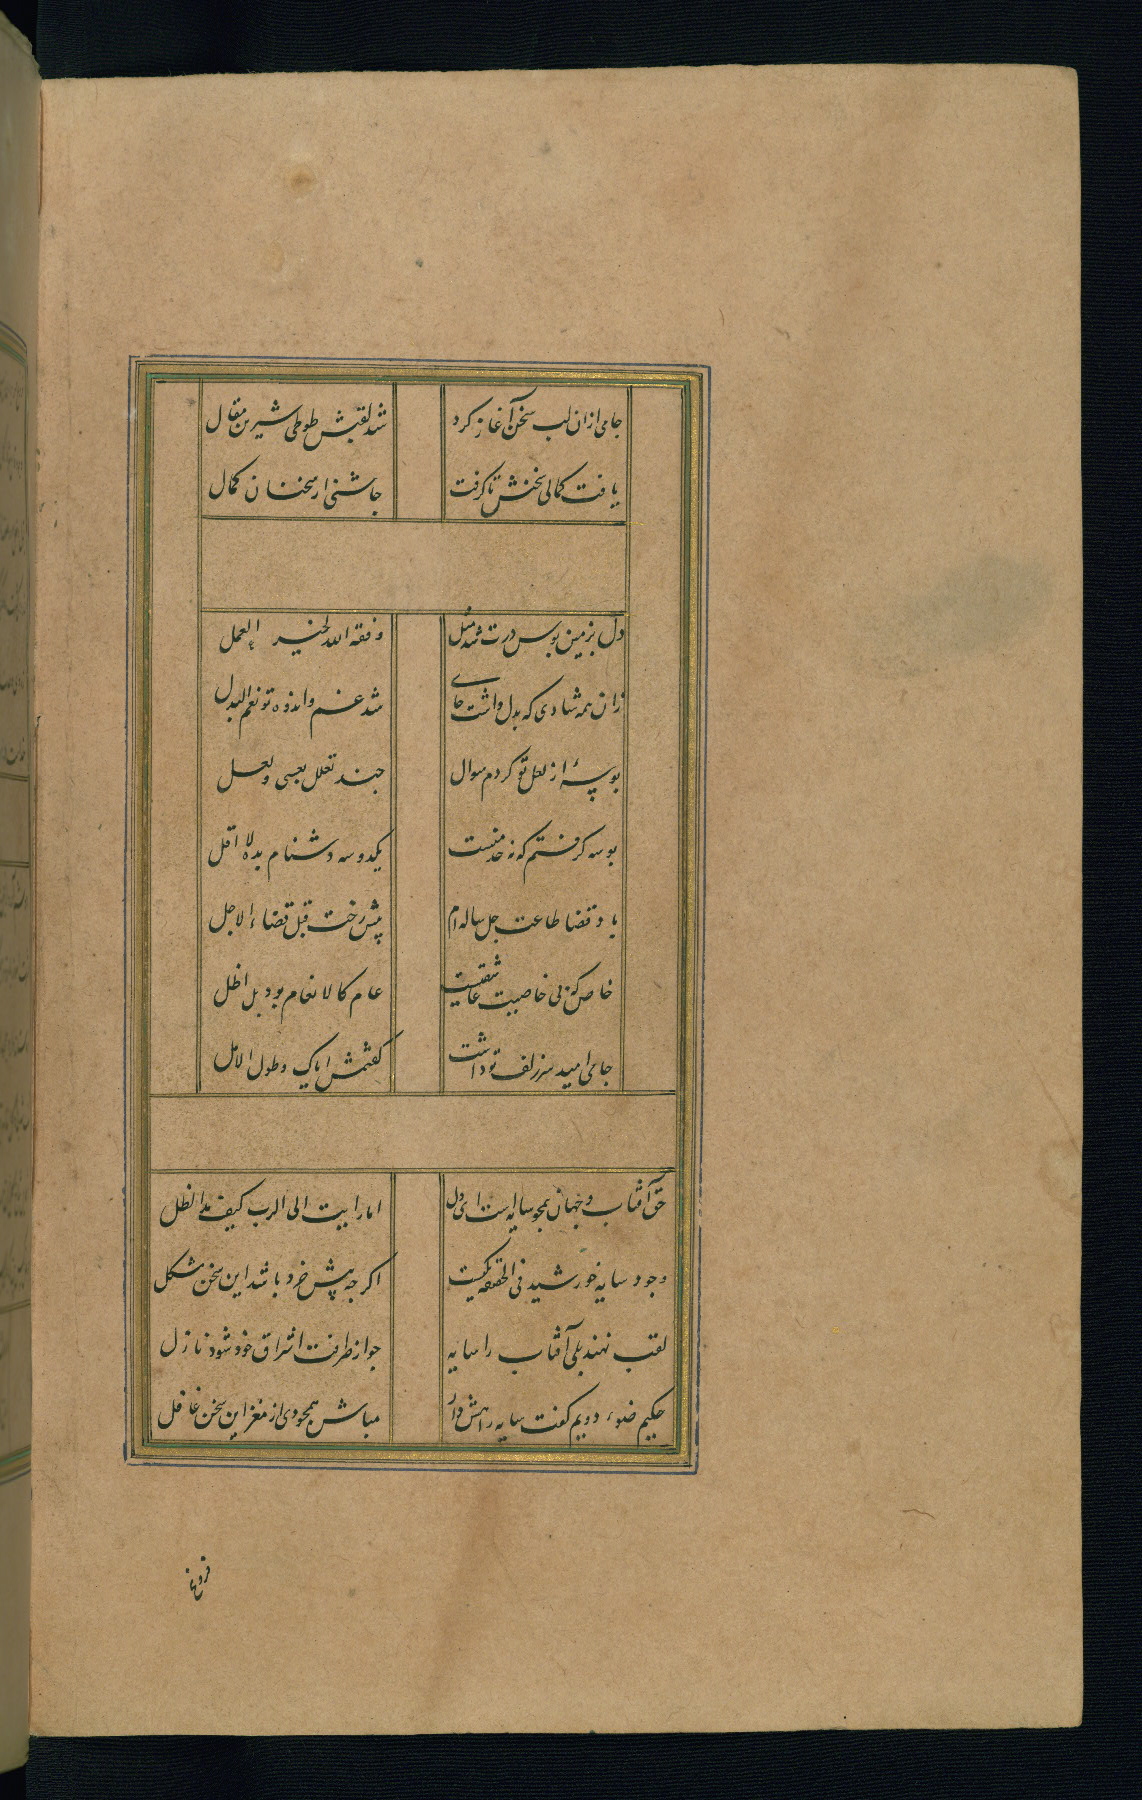 جامی ازان لب سخن آغاز کرد شد لقبش طوطی شیرین مقال
یافت کمالی سخنش تا کرفت جاشنی از سخنان کمال
دل بزمین بوس درت شد مثل وفقه الله لخیر العمل
زان همه شادی که بدل داشت جای شد غم و اندوه تو نعم البدل
بوسهٔ از لعل تو کردم سوال جند تعلل بعسی و لعل
بوسه کرفتم که نه حد منست یکدو سه دشنام بده لا اقل
باد قضا طاعت جل ساله ام پیش رخت قبل قضاء الاجل
خاص کزی خاصیت عاشقیست عام کالانعام بود بل اضل
جامی امید سر زلف تو داشت کفتمش ایاک و طول الامل
حق آفتاب و جهان همجو سایه است ای دل اما رایت الی الرب کیف مد الظل
وجود سایه خورشید فی الحقیقه یکیست اکرجه پیش خرد باشد این سخن مشکل
لقب نهند بلی آفتاب را سایه جو از طرفت اشراق خود شود نازل
حکیم ضوء دویم کفت سایه را هش دار مباش همجو دی از مغز این سخن غافل
فروغ